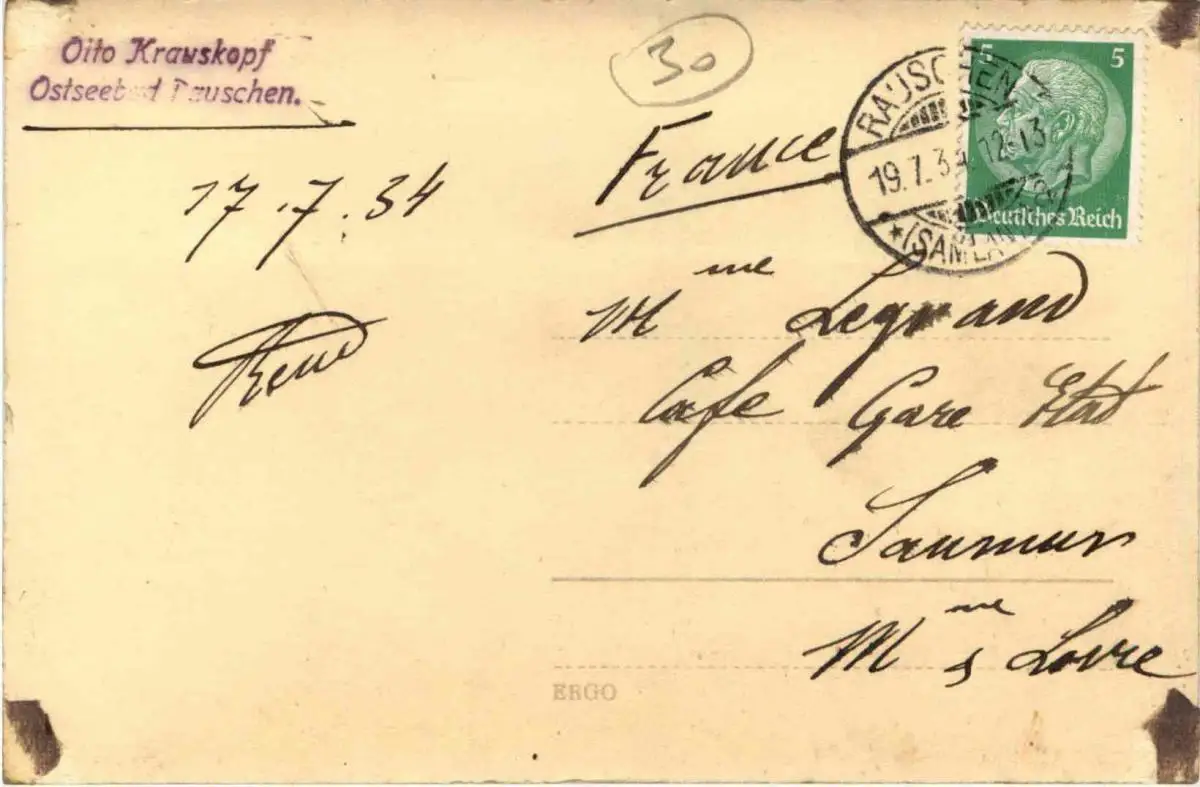 Otto Krauskopf
Ostseebad Rauschen.
30
5 5
Deutsches Reich
RAUSCHEN
19.7.34 12-13
* (SAMLAND)
France
17.7.34
Mme Legrand
Cafe Gare Etat
Saumur
Mne & Loire
ERGO